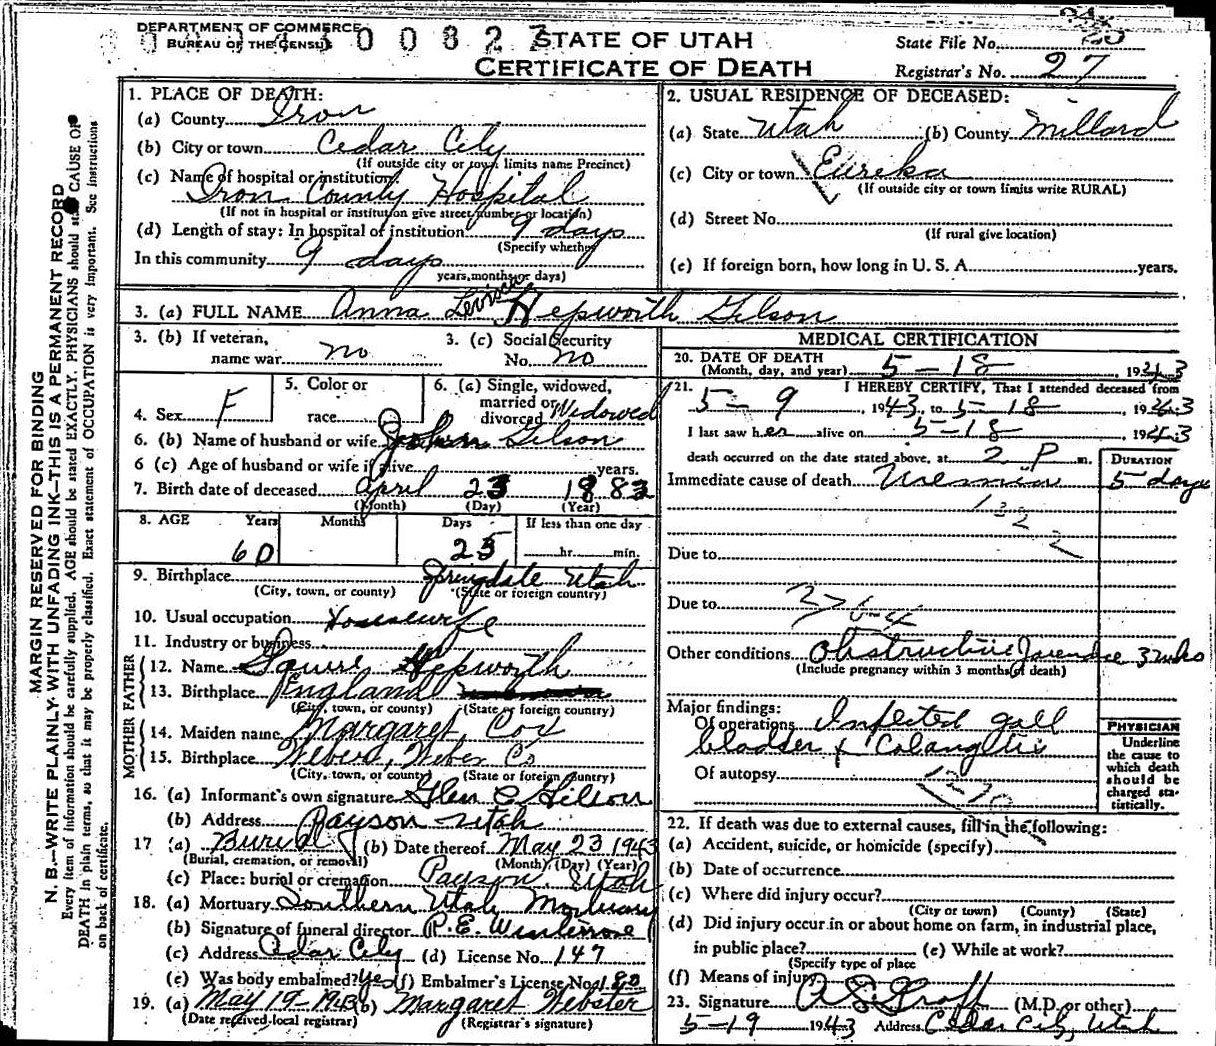 DEPARTMENT OF COMMERCE
BUREAU OF THE CENSUS
STATE OF UTAH
CERTIFICATE OF DEATH
State File No.
Registrar's No. 27
MARGIN RESERVED FOR BINDING
N. B.—WRITE PLAINLY WITH UNFADING INK—THIS IS A PERMANENT RECORD
Every item of information should be carefully supplied. AGE should be stated EXACTLY. PHYSICIANS should state CAUSE OF
DEATH in plain terms, so that it may be properly classified. Exact statement of OCCUPATION is very important. See instructions
on back of certificate.
1. PLACE OF DEATH:
(a) County Iron
(b) City or town Cedar City
(If outside city or town limits name Precinct)
(c) Name of hospital or institution:
Iron County Hospital
(If not in hospital or institution give street number or location)
(d) Length of stay: In hospital of institution 9 days
(Specify whether
In this community 9 days
years, months or days)
2. USUAL RESIDENCE OF DECEASED:
(a) State Utah (b) County Millard
(c) City or town Eureka
(If outside city or town limits write RURAL)
(d) Street No.
(If rural give location)
(e) If foreign born, how long in U. S. A. years.
3. (a) FULL NAME Anna Hepworth Gilson
3. (b) If veteran, name war no
3. (c) Social Security No. no
4. Sex F
5. Color or race
6. (a) Single, widowed, married or divorced Widowed
6. (b) Name of husband or wife John Gilson
6 (c) Age of husband or wife if alive years.
7. Birth date of deceased April 23 1883
(Month) (Day) (Year)
8. AGE Years Months Days If less than one day
60 25 hr. min.
9. Birthplace Springdale Utah
(City, town, or county) (State or foreign country)
10. Usual occupation Housewife
11. Industry or business
FATHER
12. Name Squire Hepworth
13. Birthplace England
(City, town, or county) (State or foreign country)
MOTHER
14. Maiden name Margaret Cox
15. Birthplace Weber Co
(City, town, or county) (State or foreign country)
16. (a) Informant's own signature Glen C Gilson
(b) Address Payson Utah
17 (a) Burial (b) Date thereof May 23 1943
(Burial, cremation, or removal) (Month) (Day) (Year)
(c) Place: burial or cremation Payson, Utah
18. (a) Mortuary Southern Utah Mortuary
(b) Signature of funeral director
(c) Address Cedar City (d) License No. 147
(e) Was body embalmed? Yes (f) Embalmer's License No. 182
19. (a) May 19-1943 (b) Margaret Webster
(Date received local registrar) (Registrar's signature)
MEDICAL CERTIFICATION
20. DATE OF DEATH
(Month, day, and year) 5-18, 1943
21. I HEREBY CERTIFY, That I attended deceased from
5-9, 1943, to 5-18, 1943
I last saw her alive on 5-18, 1943
death occurred on the date stated above, at 2 P m.
DURATION
Immediate cause of death Uremia 5 days
Due to
Due to
Other conditions Obstructive Jaundice 3 wks
(Include pregnancy within 3 months of death)
Major findings:
Of operations Infected gall
bladder
Of autopsy
PHYSICIAN
Underline
the cause to
which death
should be
charged sta-
tistically.
22. If death was due to external causes, fill in the following:
(a) Accident, suicide, or homicide (specify)
(b) Date of occurrence
(c) Where did injury occur?
(City or town) (County) (State)
(d) Did injury occur in or about home on farm, in industrial place,
in public place? (e) While at work?
(Specify type of place
(f) Means of injury
23. Signature (M.D. or other)
5-19 1943 Address Cedar City, Utah